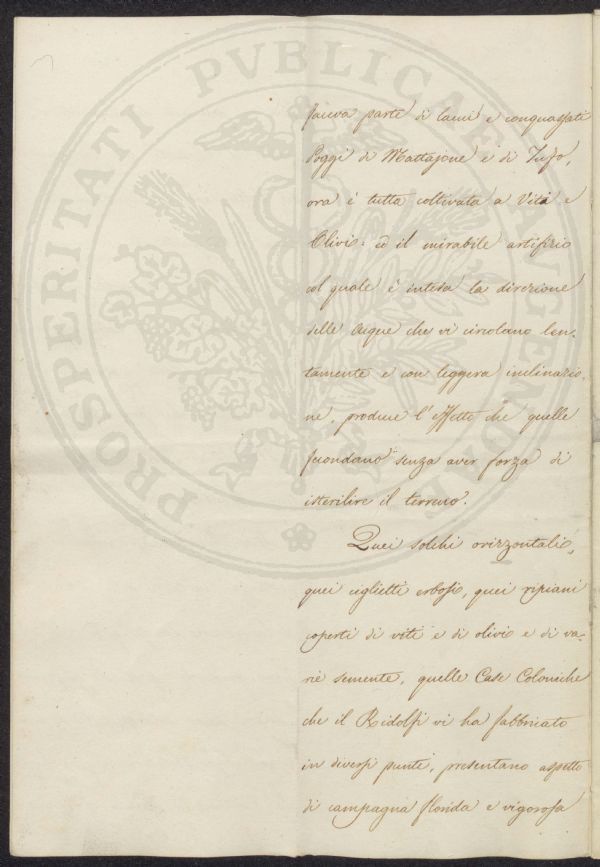 PROSPERITATI PVBLICAE AVGENDAE
faceva parte di laceri e conquassati
Poggi di Mattajone e di Tufo,
ora è tutta coltivata a Viti e
Olivi: ed il mirabile artifizio
col quale è intesa la direzione
delle Acque che vi circolano len-
tamente e con leggera inclinazio-
ne, produce l'effetto che quelle
fecondano senza aver forza di
isterilire il terreno.
Quei solchi orizzontali,
quei ciglietti erbosi, quei ripiani
coperti di viti e di olivi e di va-
rie semente, quelle Case Coloniche
che il Ridolfi vi ha fabbricato
in diversi punti, presentano aspetto
di campagna florida e vigorosa